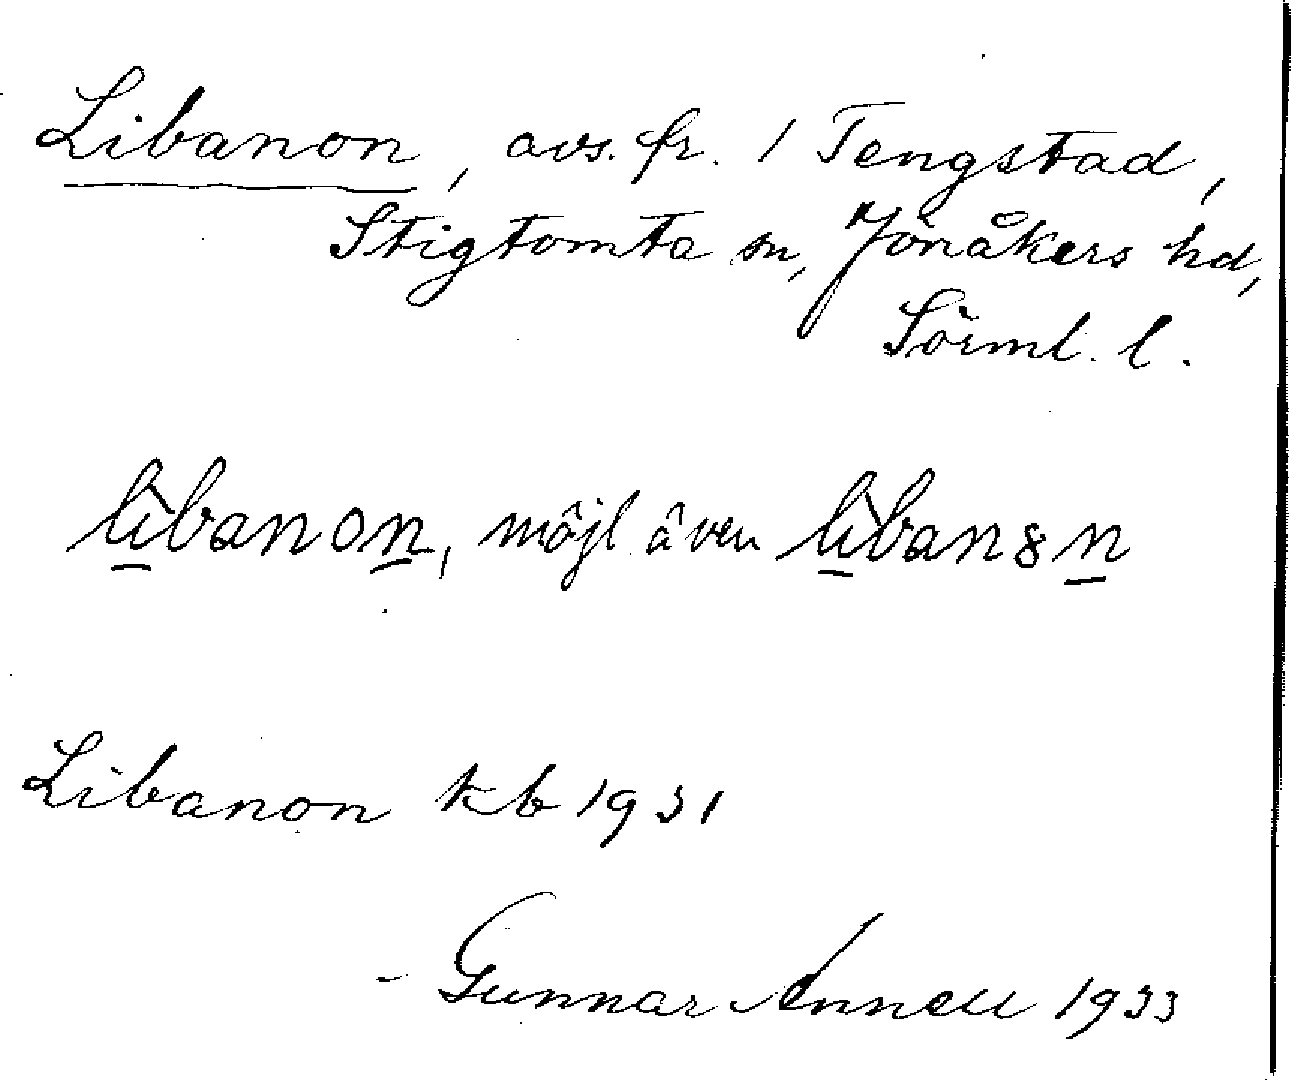 Libanon, avs. fr. 1 Tengstad,
Stigtomta sn, Jönåkers hd,
Sörml. l.
lìbanon, möjl även lìbanȣn
Libanon kb 1931
- Gunnar Annell 1933